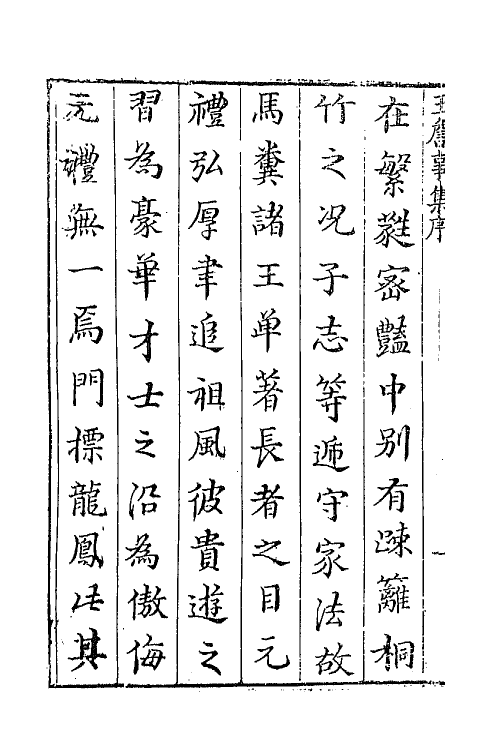 王詹事集序
在繁蕤宻豔中别有踈籬桐
竹之况子志等遞守家法故
馬糞諸王单著長者之目元
禮弘厚聿追祖風彼貴遊之
習為豪華才士之沿為傲侮
元禮無一焉門標龍鳳此其
一